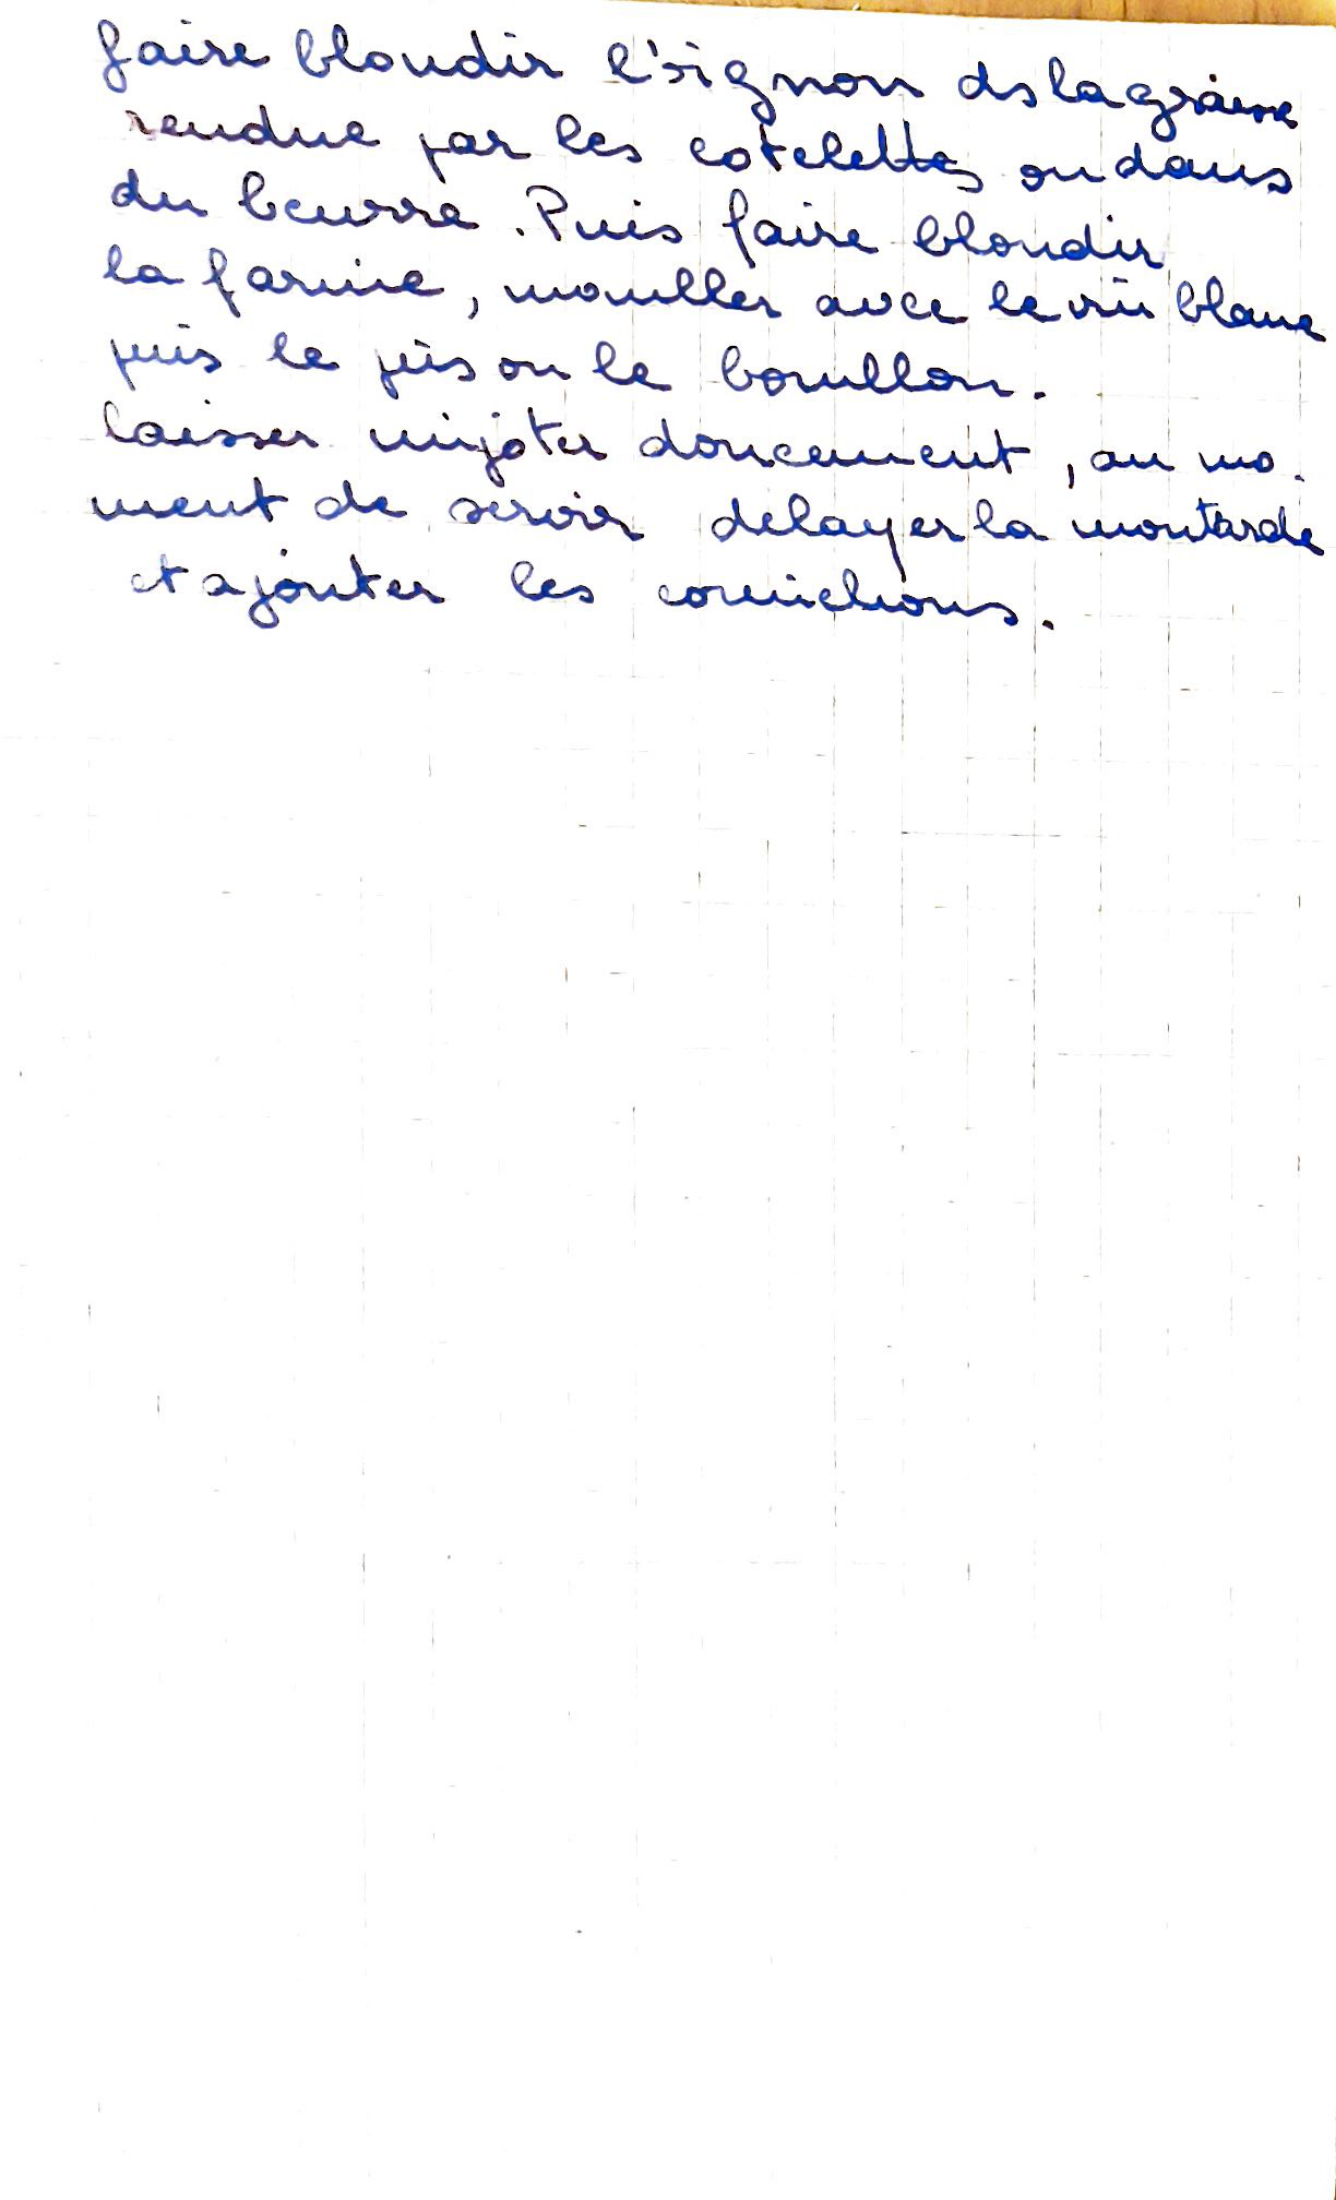 faire blondir l'oignon ds la graisse
rendue par les cotelettes ou dans
du beurre. Puis faire blondir
la farine, mouiller avec le vin blanc
puis le jus ou le bouillon.
laisser mijoter doucement, au mo-
ment de servir delayer la moutarde
et ajouter les cornichons.